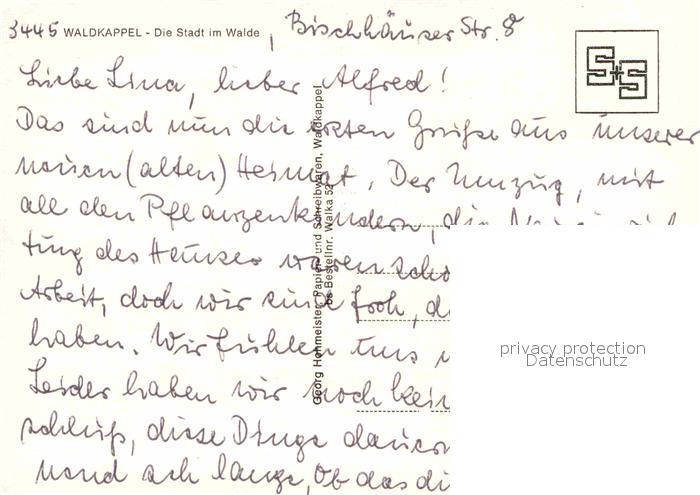 3445 WALDKAPPEL - Die Stadt im Walde, Bischhäuser Str. 8
Liebe Lina, lieber Alfred!
Das sind nun die ersten Grüße aus unserer
neuen (alten) Heimat. Der Umzug, mit
all den Pflanzenkindern, die
tung des Hauses waren scho
Arbeit, doch wir sind froh, d
haben. Wir fühlen uns
Leider haben wir noch kein
schluß, diese Dinge dauern
lange, Ob das di
Georg Hohmeister, Papier- und Schreibwaren, Waldkappel
Bestellnr. Walka 52
SS
privacy protection
Datenschutz